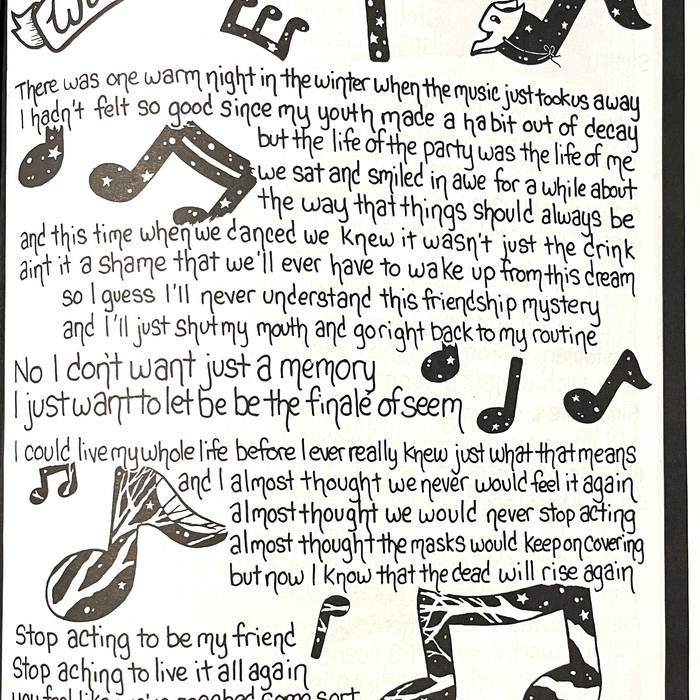 There was one warm night in the winter when the music just took us away
I hadn't felt so good since my youth made a habit out of decay
but the life of the party was the life of me
we sat and smiled in awe for a while about
the way that things should always be
and this time when we danced we knew it wasn't just the drink
aint it a shame that we'll ever have to wake up from this dream
so I guess I'll never understand this friendship mystery
and I'll just shut my mouth and go right back to my routine
No I don't want just a memory
I just want to let be be the finale of seem
I could live my whole life before I ever really knew just what that means
and I almost thought we never would feel it again
almost thought we would never stop acting
almost thought the masks would keep on covering
but now I know that the dead will rise again
Stop acting to be my friend
Stop aching to live it all again
you feel like we've reached some sort